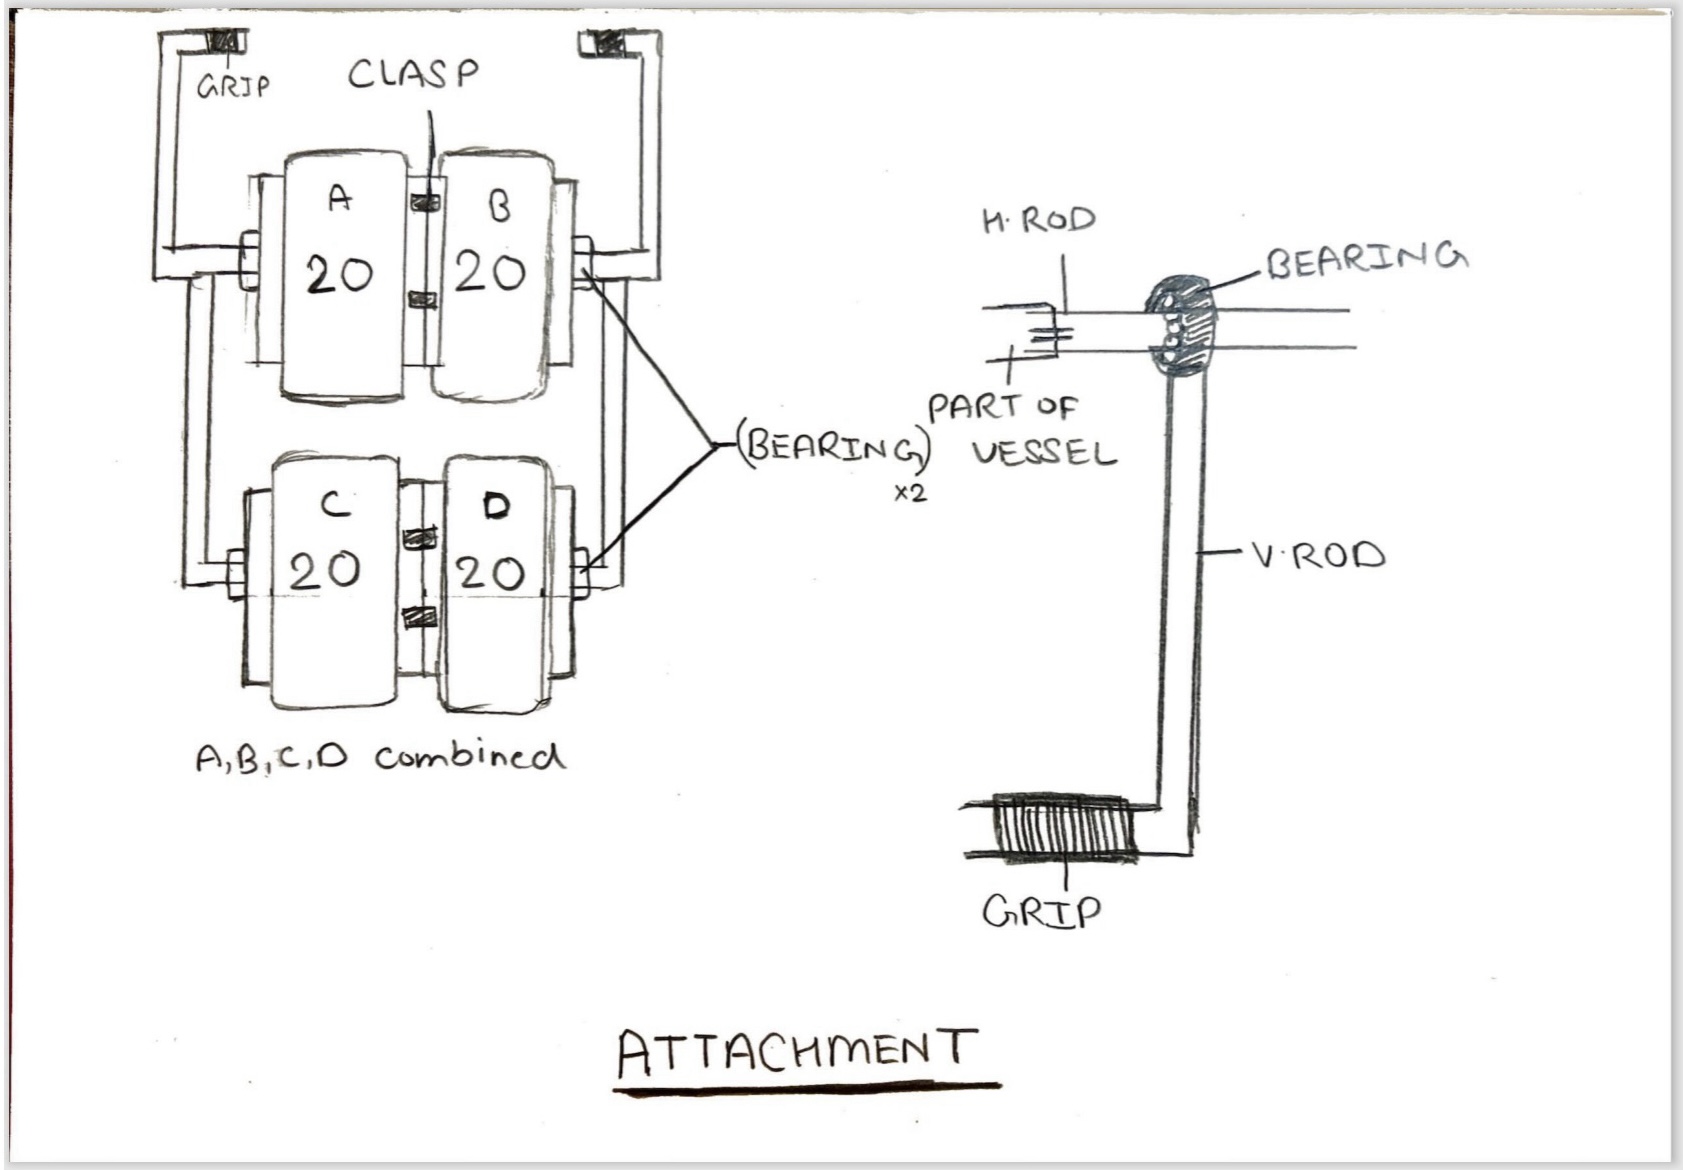 GRIP
CLASP
A
20
B
20
(BEARING)
x2
C
20
D
20
A,B,C,D combined
H.ROD
BEARING
PART OF
VESSEL
V.ROD
GRIP
ATTACHMENT